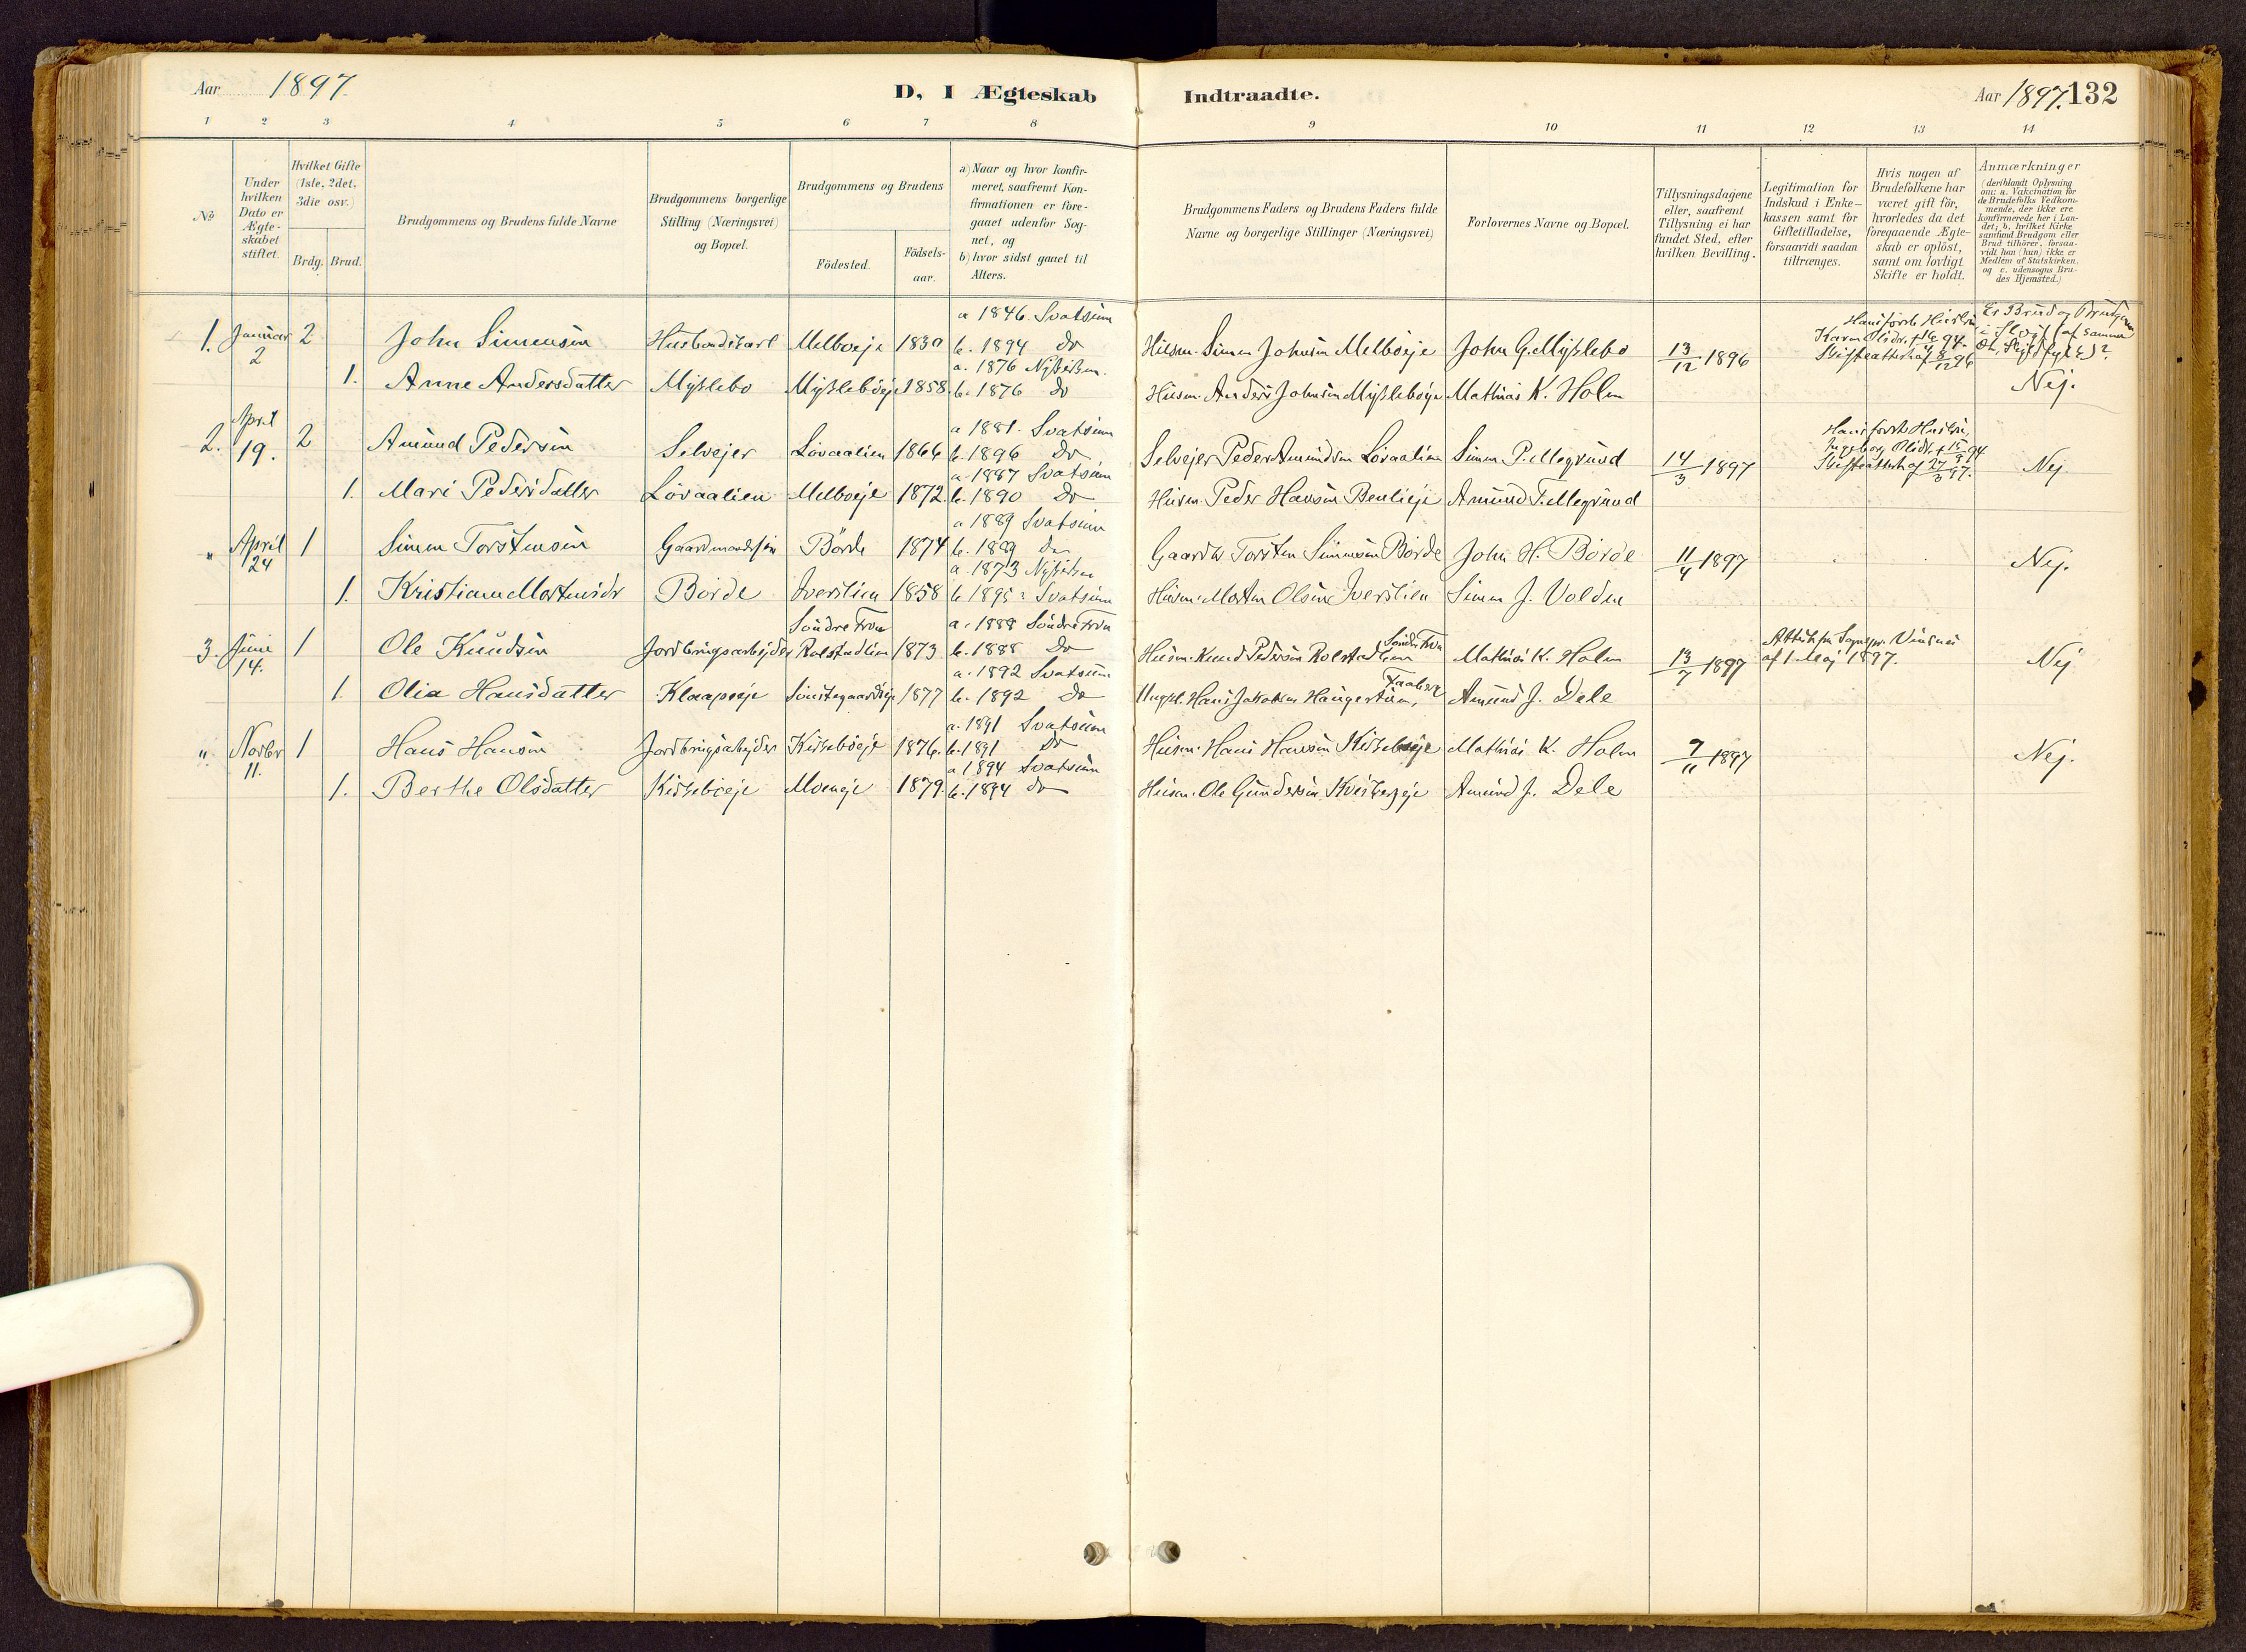 Aar 1897
D, I Ægteskab Indtraadte.
Aar 1897. 132
1 2 3 4 5 6 7 8 9 10 11 12 13 14
No
Under hvilken Dato er Ægteskabet stiftet.
Hvilket Gifte (1ste, 2det, 3die osv.)
Brdg. Brud.
Brudgommens og Brudens fulde Navne
Brudgommens borgerlige Stilling (Næringsvei) og Bopæl.
Brudgommens og Brudens
Födested. Födsels-aar.
a) Naar og hvor konfir-
meret, saafremt Kon-
firmationen er fore-
gaaet udenfor Sog-
net, og
b) hvor sidst gaaet til
Alters.
Brudgommens Faders og Brudens Faders fulde
Navne og borgerlige Stillinger (Næringsvei)
Forlovernes Navne og Bopæl.
Tillysningsdagene
eller, saafremt
Tillysning ei har
fundet Sted, efter
hvilken Bevilling.
Legitimation for
Indskud i Enke-
kassen samt for
Giftetilladelse,
forsaavidt saadan
tiltrænges.
Hvis nogen af
Brudefolkene har
været gift för,
hvorledes da det
foregaaende Ægte-
skab er oplöst,
samt om lovligt
Skifte er holdt.
Anmærkninger
(deriblandt Oplysning
om: a. Vakcination for
de Brudefolks Vedkom-
mende, der ikke ere
konfirmerede her i Lan-
det; b. hvilket Kirke
samfund Brudgom eller
Brud tilhörer, forsaa-
vidt han (hun) ikke er
Medlem af Statskirken.
og c. udensogns Bru-
des Hjemsted.)
1. Januar 2 2 John Simensen Husbondskarl Melboeje 1830 a 1846. Svatsum b. 1894 do Husm. Simen Johnsen Melboeje John G. Myßlebo 13/12 1896
1. Anne Andersdatter Myßlebo Myßleböeje 1858. a. 1876 b. 1876 do Husm. Anders Johnsen Myßleböeje Mathias K. Holm Nej.
2. April 19. 2 Amund Pedersen Selvejer Lövaalien 1866 a 1881. Svatsum b. 1896 Do Selvejer Peder Amundsen Lövaalien Simen P. Megrund 14/3 1897 Nej
1. Mari Pedersdatter Lövaalien Melboeje 1872. a. 1887 Svatsum b. 1890 Do Husm. Peder Hansen Amund T. Megrund
" April 24 1 Simen Torstensen Gaardmandssön Börde 1874 a 1889 Svatsum b. 1889 do Torsten Simensen Börde John H. Börde 11/4 1897 Nej.
1. Kristiane Mortensdr Börde Iverslien 1858 a. 1873 b. 1895 Svatsum Husm. Morten Olsen Iverslien Simen J. Volden
3. Juni 14. 1 Ole Knudsen Jordbrugsarbejder Söndre Fron Rolstadlien 1873 a. 1888 Söndre Fron b. 1888 Do Husm. Knud Pedersen Rolstadlien Söndre Fron Mathias K. Holm 13/7 1897 af 1 Maj 1897. Nej
1. Olia Hansdatter Klaapeje 1877 a. 1892 Svatsum b. 1892 Do Ungkl. Hans Jakobsen Haugerstuen, Faaberg Amund J. Dele
" Novbr 11. 1 Hans Hansen Jordbrugsarbejder Kirkeböeje 1876. a. 1891 Svatsum b. 1891 Do Husm. Hans Hansen Kirkeböeje Mathias K. Holm 7/11 1897 Nej.
1. Berthe Olsdatter Kirkeböeje Moeneje 1879. a 1894 Svatsum b. 1894 do Husm. Ole Gundersen Amund J. Dele